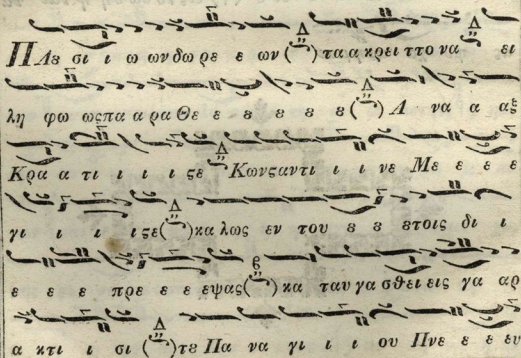 ΠΛε σι ι ω ων δω ρε ε ων ( ) τα α κρει ττο να ει
λη φω ως πα α ρα Θε ε ȣ ȣ ȣ ȣ ȣ ( ) Α να α αξ
Κρα α τι ι ι ι ϛε Κωνϛαντι ι ι νε Με ε ε ε
γι ι ι ι ι ϛε ( ) κα λως εν του ȣ ȣ ȣτοις δι ι
ε ε ε πρε ε ε εψας ( ) κα ταυ γα σθει εις γα αρ
α κτι ι σι ( ) τε Πα να γι ι ι ου Πνε ε ε ευ